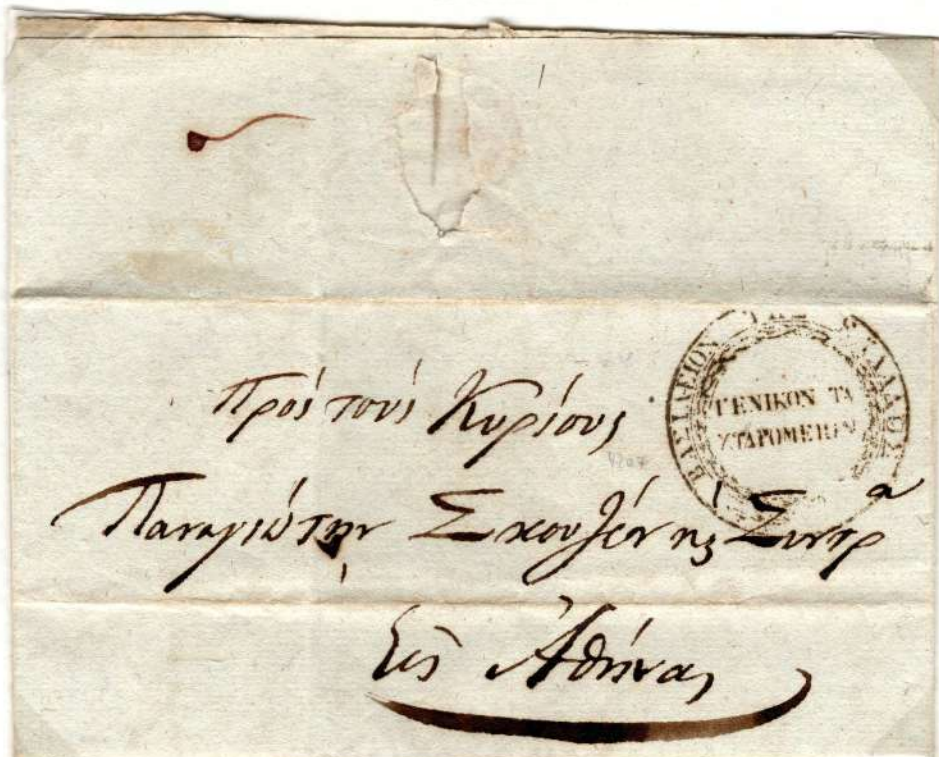 ΒΑΣΙΛΕΙΟΝ ΕΛΛΑΔΟΣ
ΓΕΝΙΚΟΝ ΤΑ
ΧΥΔΡΟΜΕΙΟΝ
Πρός τούς Κυρίους
Παναγιώτην Σκουζέν κς Συντρ^α
Εἰς Ἀθήνας